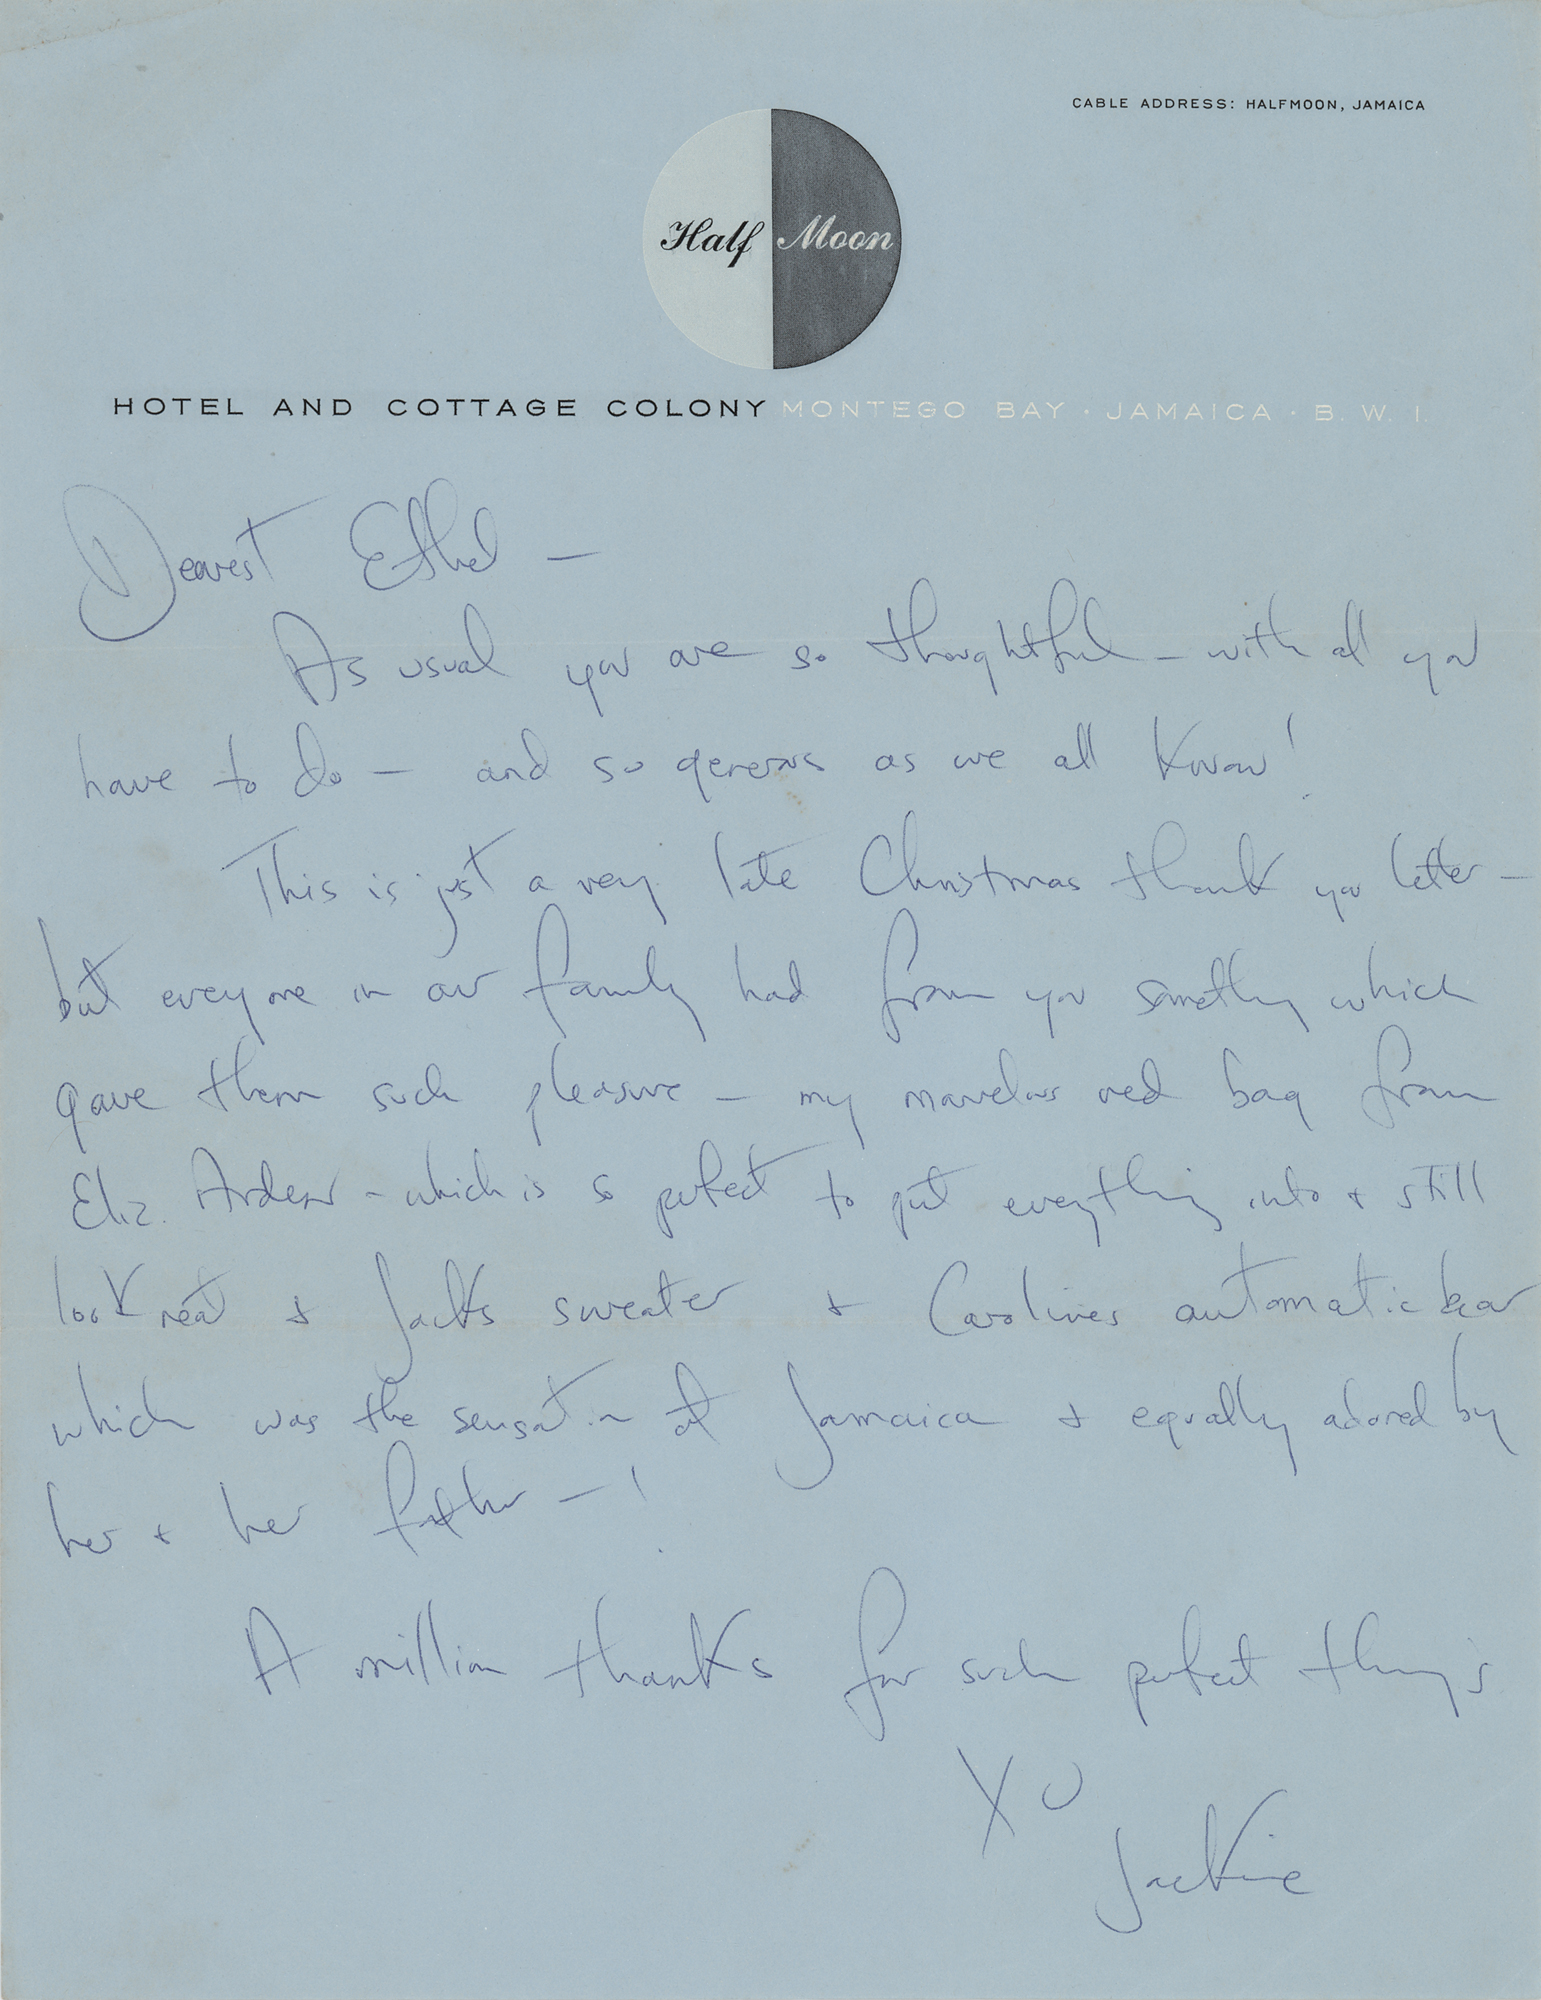 CABLE ADDRESS: HALFMOON, JAMAICA
Half Moon
HOTEL AND COTTAGE COLONY MONTEGO BAY · JAMAICA · B. W. I.
Dearest Ethel —
As usual you are so thoughtful — with all you
have to do — and so generous as we all know!
This is just a very late Christmas thank you letter —
but everyone in our family had from you something which
gave them such pleasure — my marvelous red bag from
Eliz. Arden — which is so perfect to put everything into + still
look neat + Jacks sweater + Carolines automatic bear
which was the sensation at Jamaica + equally adored by
her + her father — !
A million thanks for such perfect things
XO
Jackie